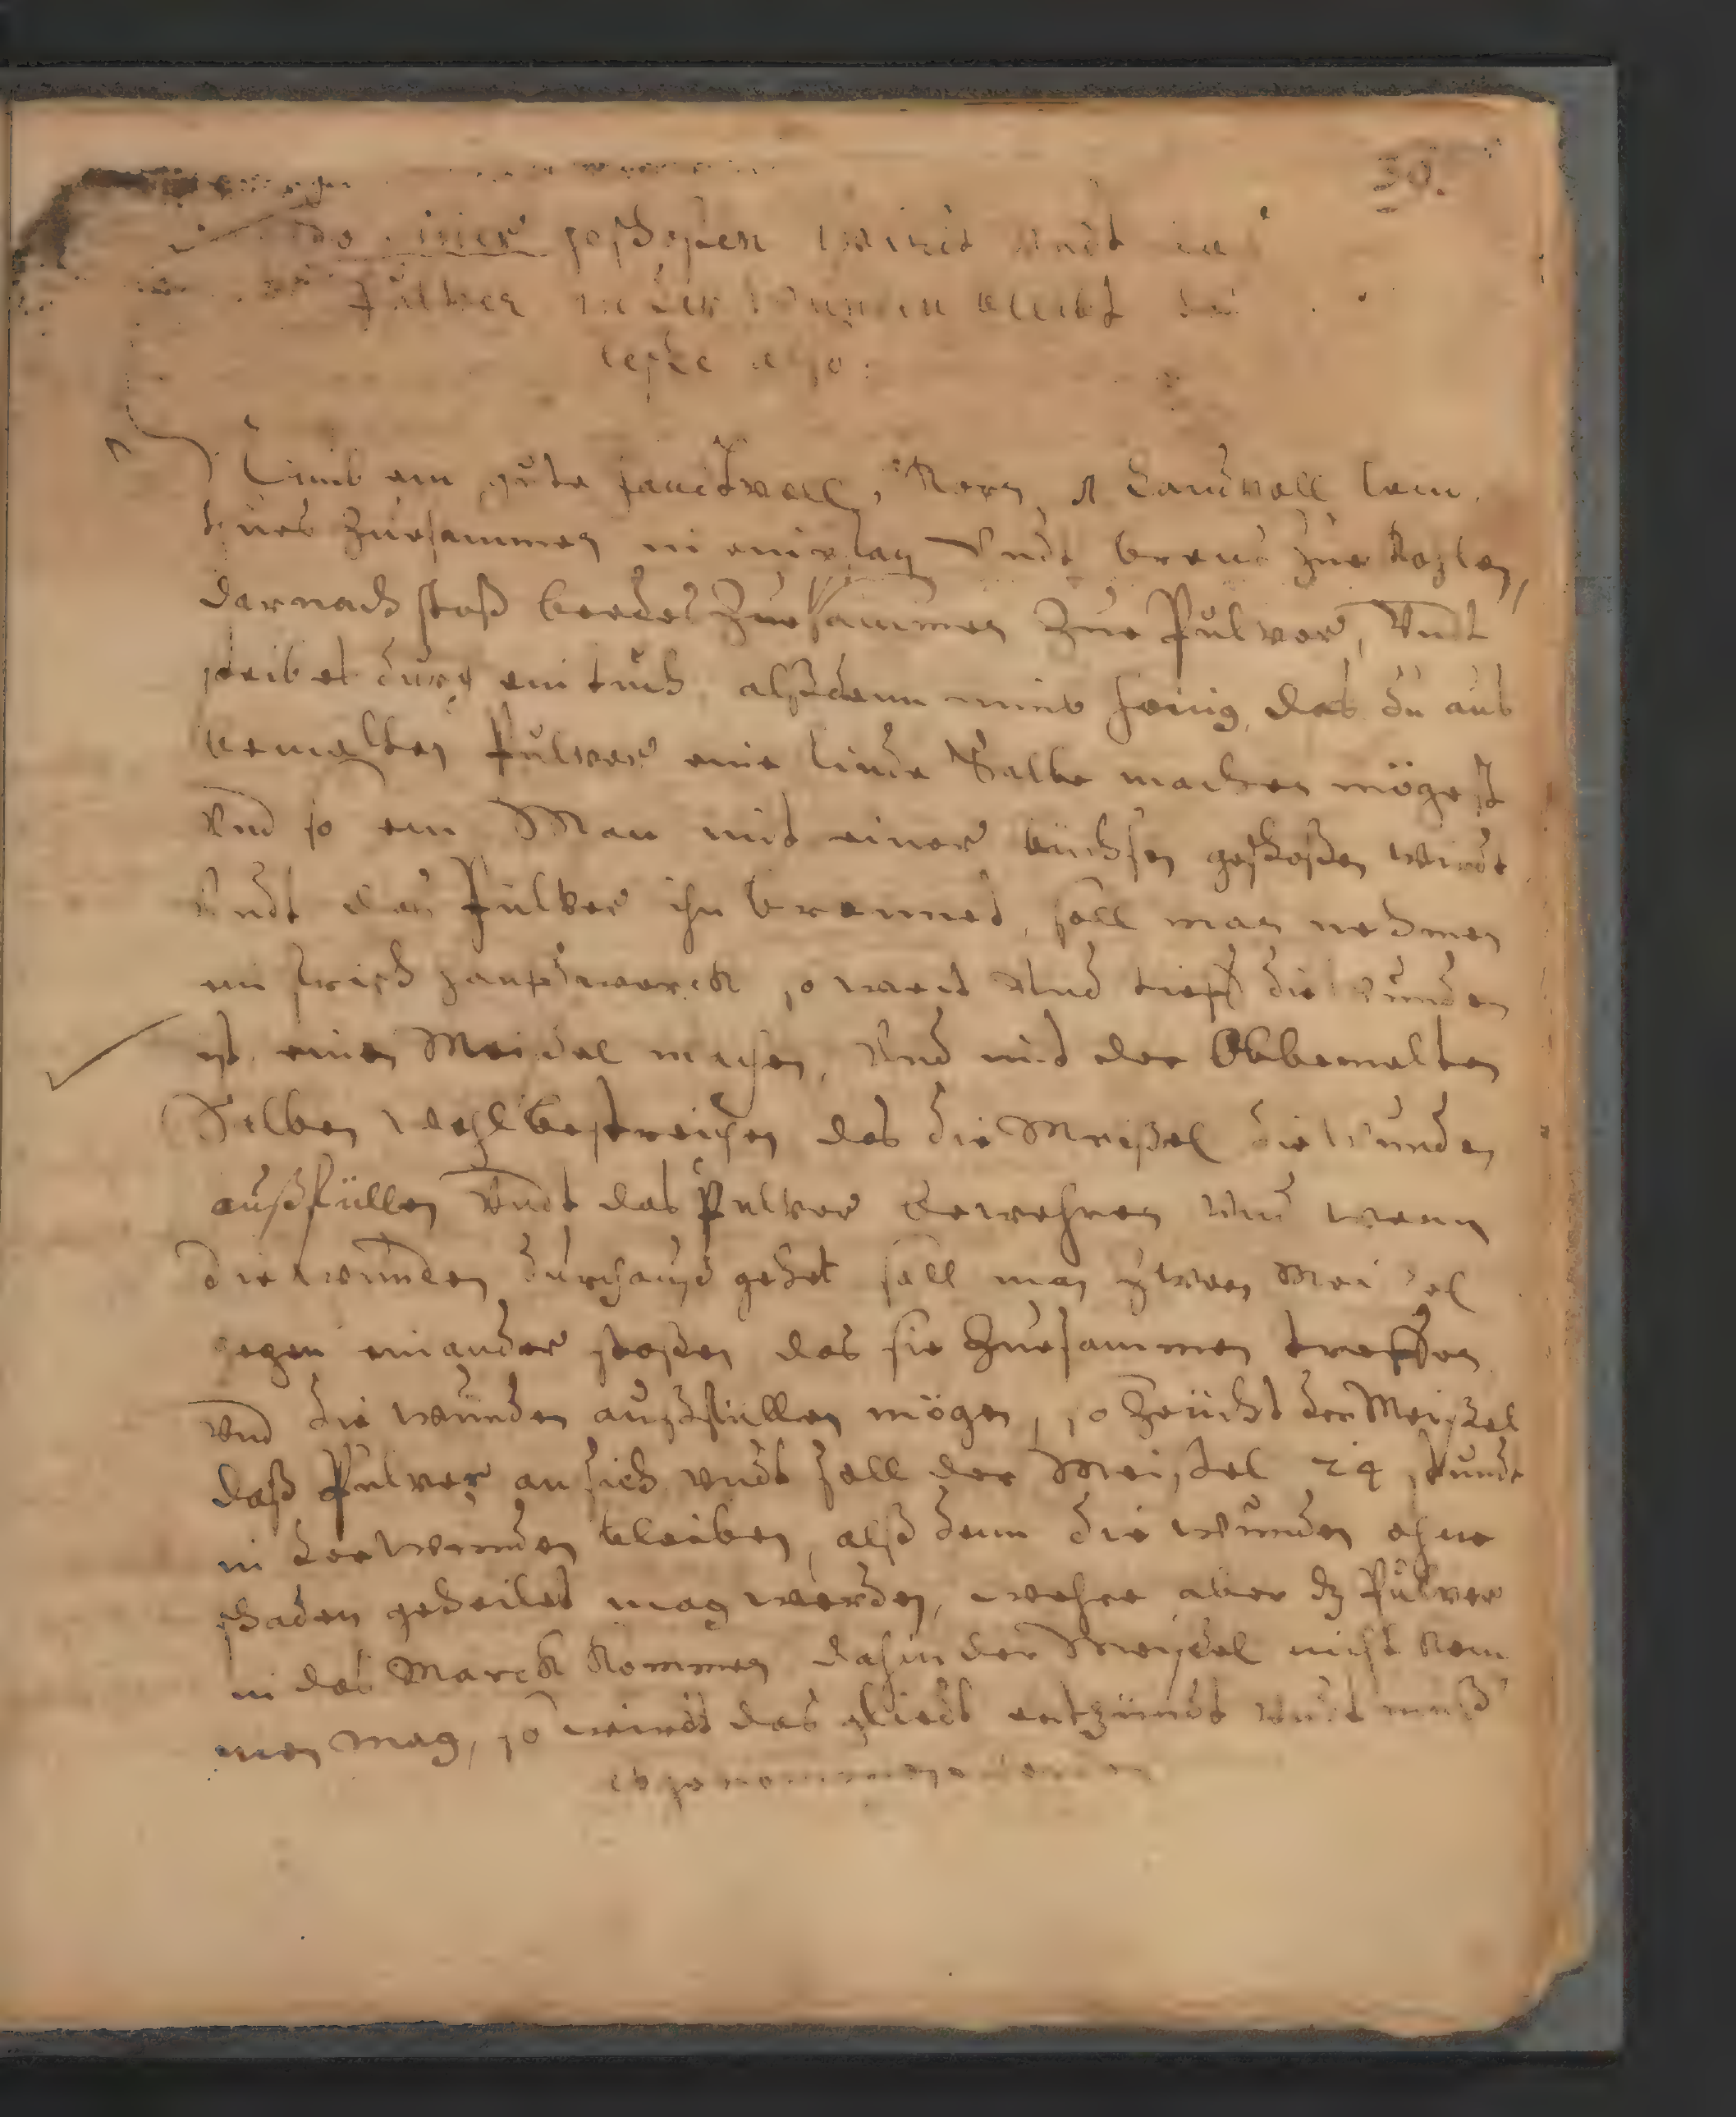 30.
so einer geschossen wirdt vndt
Pulver in der Wunden bleibt
leste also:
Nimb ein gute handtvoll Korn, handvoll lein,
thues zuesammen in ein vndt bren zue kohlen,
darnach stoß beedes zuesammen zue Pulver, vndt
reibet durch ein tuch, alßdann nimb honig, das du aus
bemelten Pulver eine linde Salbe machen mögest
Vnd so ein Man mit einer büchsen geschoßen wirdt
Vndt das Pulver ihn brennet, soll man nehmen
ein frisch hanfwerck so weit vnd tieff die wunden
ist, einen Meissel machen, Vnd mit der Obbemelten
Salben wohl bestreichen das die Meißel die wunden
außfüllen Vndt das Pulver wan
die wunden durchauß gehet soll man zween Meissel
gegen einander stoßen das sie zuesammen treffen
Vnd die wunden außfüllen mögen, so zeücht der Meissel
daß Pulver an sich vndt soll der Meissel 24 stunde
in der wunden bleiben, alß denn die wunden ohne
schaden geheilet mag werden, wehre aber dz Pulver
in das Marck kommen dahin der Meissel nicht kom
men mag, so wirdt das gliedt entzündt vndt muß
abgenommen werden